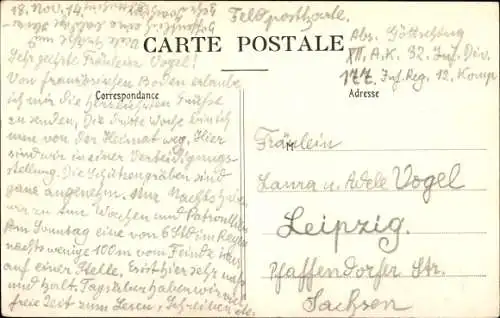 18. Nov. 14.
Feldpostkarte.
CARTE POSTALE
Abs. Göttsching
XII. A.K. 32. Inf. Div.
177. Inf. Reg. 12. Komp
Correspondance
Adresse
Sehr geehrte Fräulein Vogel!
Von französischen Boden erlaube
ich mir die herzlichsten Grüße
zu senden. Die dritte Woche bin ich
nun von der Heimat weg. Hier
sind wir in einer Verteidigungs-
stellung. Die Schützengräben sind
ganz angenehm. Nur Nachts
wir zum Wachen und Patrouillen
Am Sonntag eine von 6 Std im Regen
nachts wenige 100 m vom Feinde
auf einer Stelle. Es ist hier sehr
und kalt. Tagsüber haben wir
freie Zeit zum Lesen, Schreiben etc.
Fräulein
Laura u. Adele Vogel
Leipzig.
Pfaffendorfer Str.
Sachsen